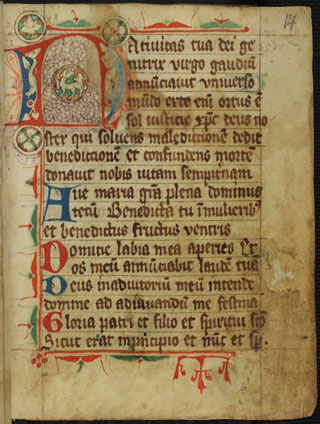 14
Natiuitas tua dei ge
nitrix uirgo gaudiū
annūciauit uniuerso
mūdo ex te eiū ortus ē
sol iusticie xp̄c deus no
ster qui soluens maledictionē dedit
benedictionē et confundens mortē
donauit nobis uitam sempitnam
Aue maria grā plena dominus
tecū Benedicta tu ī mulierib9
et benedictus fructus uentris
Domine labia mea aperies Et
os meū annūciabit laudē tuā
Deus in adiutoriū meū intende
domine ad adiuuandū me festina
Gloria patri et filio et spiritui sc̄o
Sicut erat in pncipio et nūc et sp̄